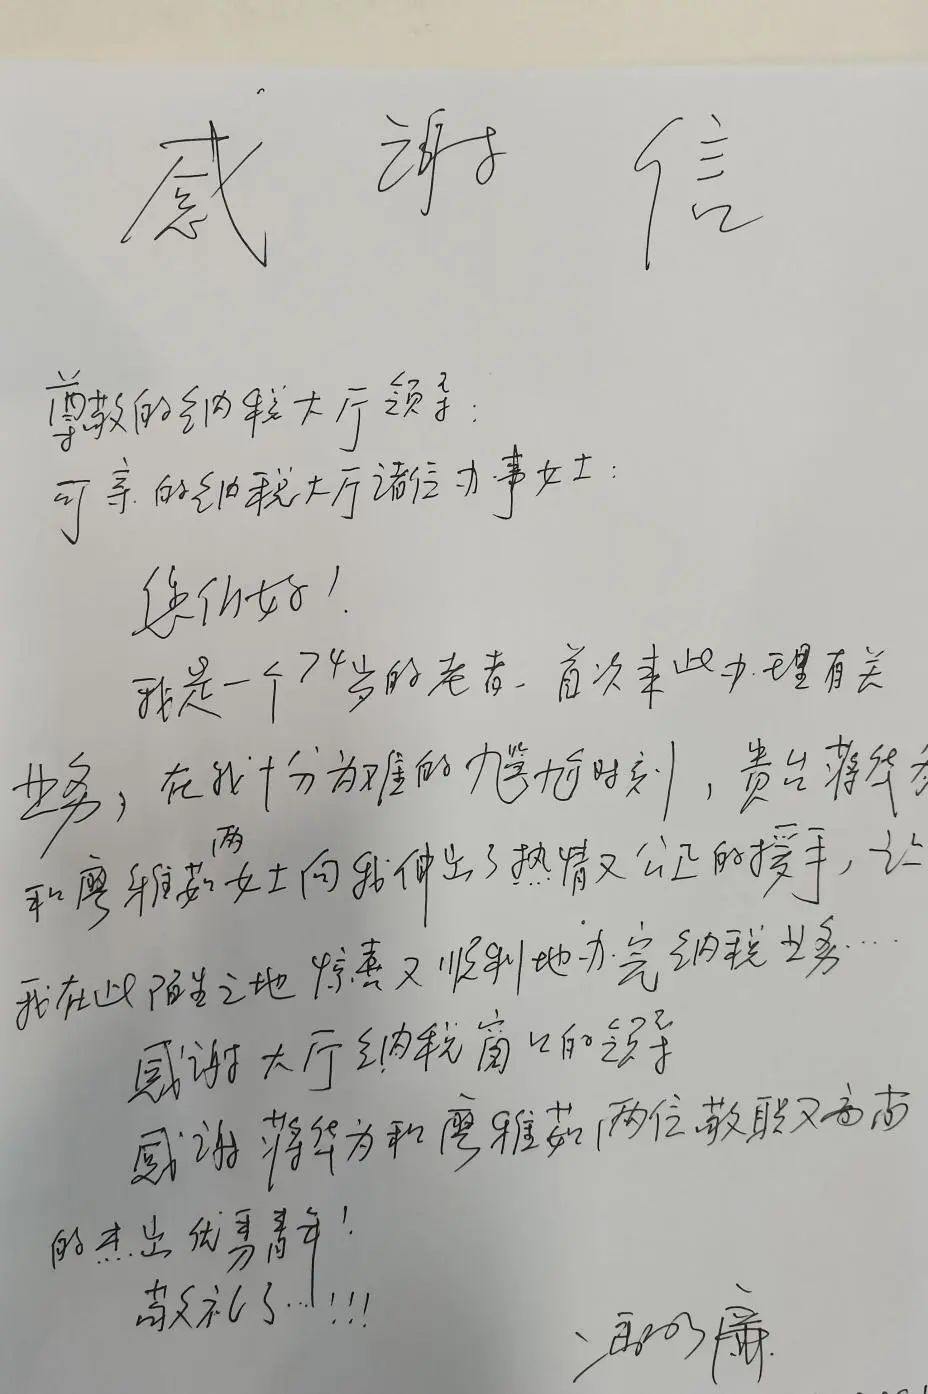 感谢信
尊敬的纳税大厅领导:
可亲的纳税大厅诸位办事女士:
您们好!
我是一个74岁的老者、首次来此办理有关
业务,在我十分为难的尴尬时刻,贵台蒋华为
和廖雅茹两女士向我伸出了热情又公正的援手,让
我在此陌生之地惊喜又顺利地办完纳税业务……
感谢大厅纳税窗口的领导
感谢蒋华为和廖雅茹两位敬职又高尚
的杰出优秀青年!
敬礼了…!!!